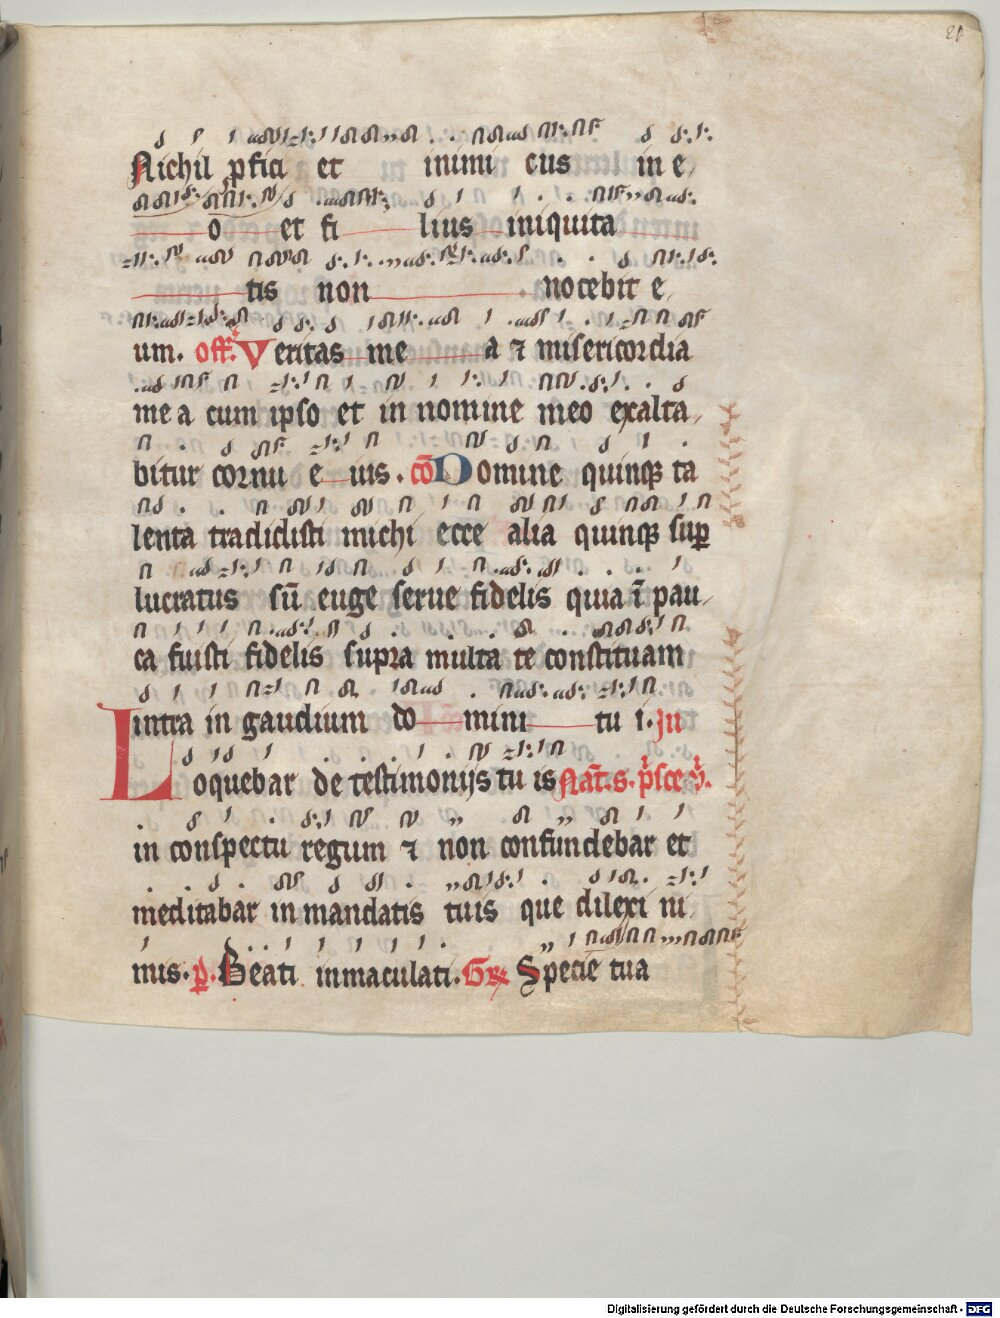 21
Nichil ꝓficiet inimicus in e
o et filius iniquita
tis non nocebit e
um. Off. Veritas mea ⁊ misericordia
mea cum ipso et in nomine meo exalta
bitur cornu eius. co Domine quinqꝫ ta
lenta tradidisti michi ecce alia quinqꝫ sup̲
lucratus sū euge serue fidelis quia ī pau
ca fuisti fidelis supra multa te constituam
intra in gaudium domini tui. In
Loquebar de testimonijs tuis Nat. s. p̓sce v̓.
in conspectu regum ⁊ non confundebar et
meditabar in mandatis tuis que dilexi ni
mis. p̄. Beati inmaculati. Gr Specie tua
Digitalisierung gefördert durch die Deutsche Forschungsgemeinschaft - DFG